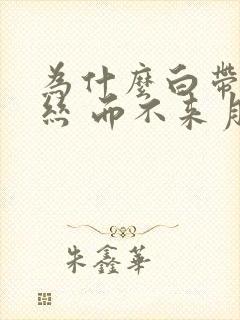 為什麼白帶
絲 而不来月
朱鑫華